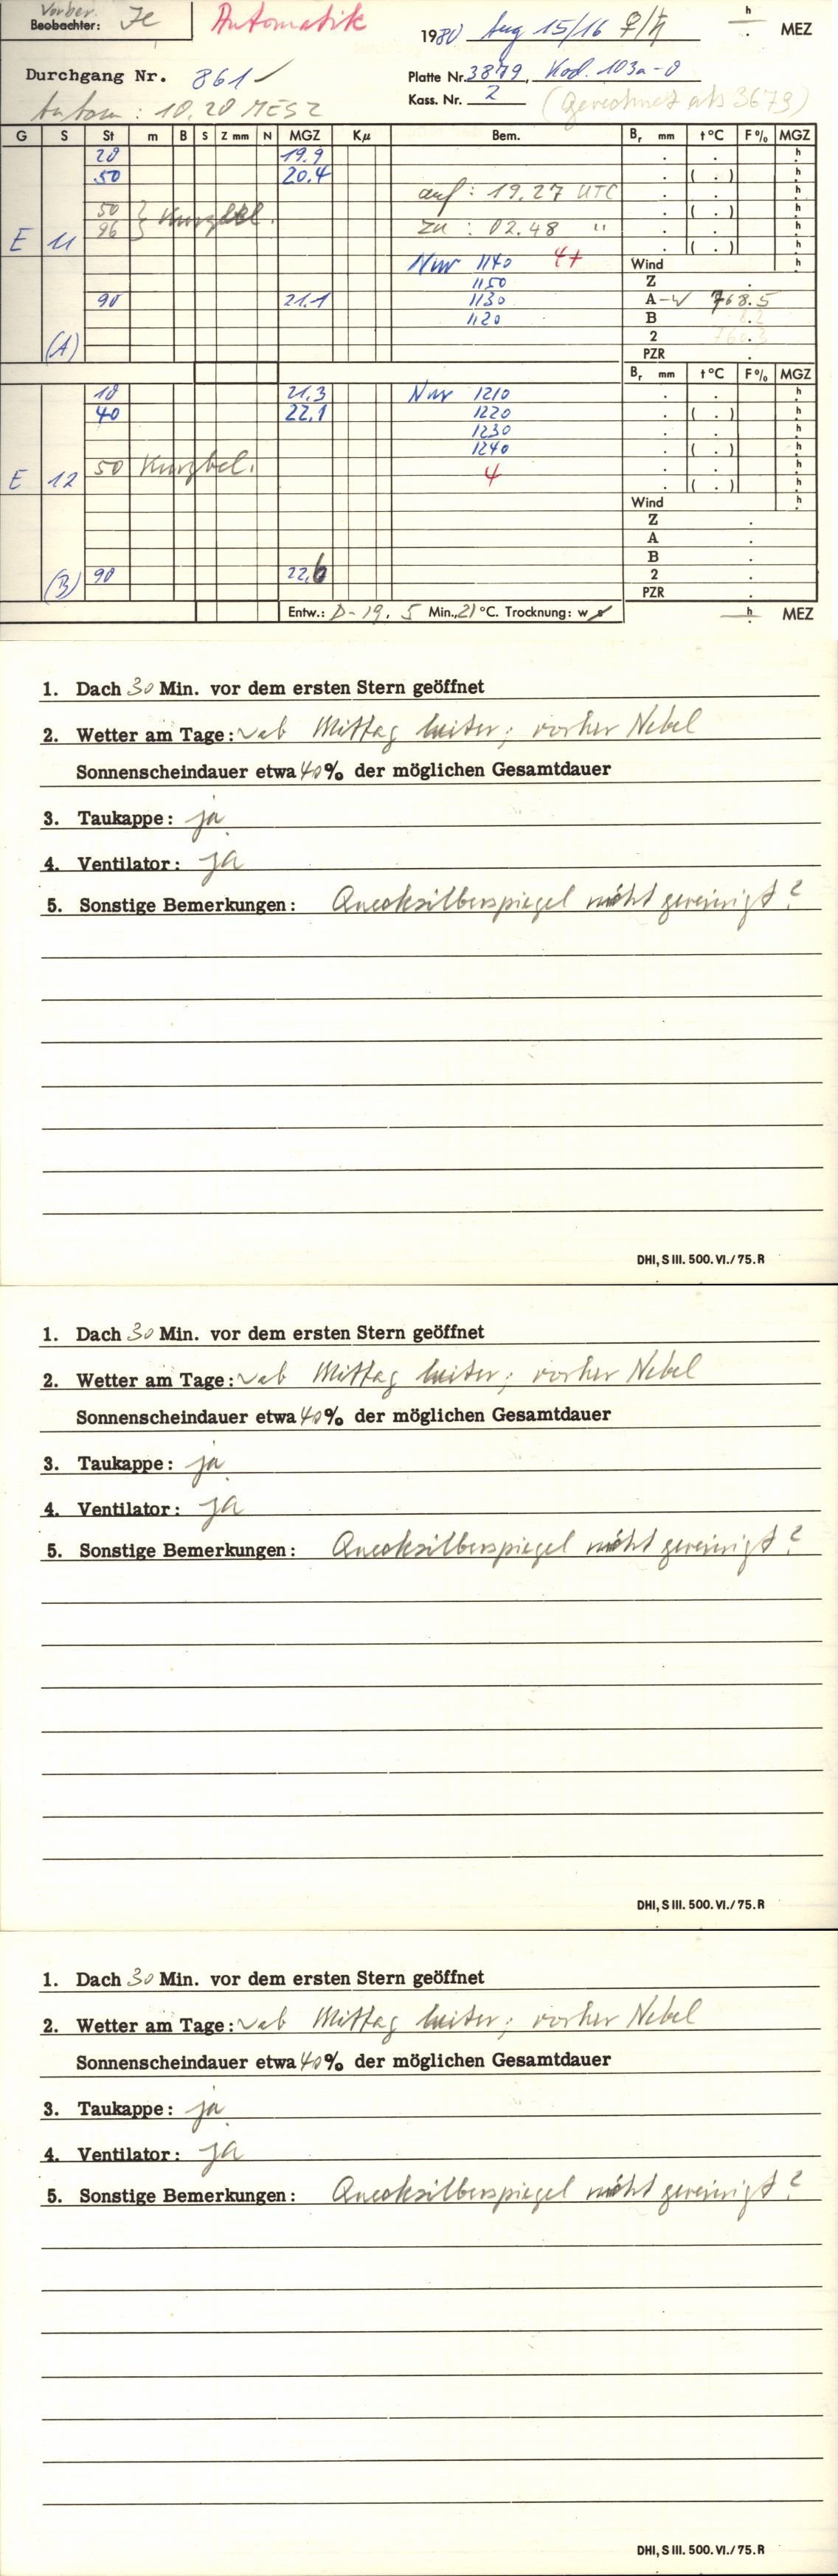 Vorber.
Beobachter: Je Automatik 1980 Aug 15/16 ♀/♄ h . MEZ
Durchgang Nr. 861 ✓ Platte Nr. 3879, Kod. 103a-0
Autom: 10.20 MESZ Kass. Nr. 2 (Gerechnet als 3679)
G S St m B S Z mm N MGZ Kµ Bem. Br mm t°C F% MGZ
20 19.9
50 20.4
auf: 19.27 UTC
50 } Kurzbel.
96 zu: 02.48 "
E 11
Nur 1140 4+ Wind
1150 Z
90 21.1 1130 A-W 768.5
1120 B
2
(A) PZR
Br mm t°C F% MGZ
10 21,3 Nur 1210
40 22,1 1220
1230
1240
E 12 50 Kurzbel. 4
Wind
Z
A
B
(B) 90 22,6 2
PZR
Entw.: D-19. 5 Min., 21 °C. Trocknung: w s h . MEZ
1. Dach 30 Min. vor dem ersten Stern geöffnet
2. Wetter am Tage: ab Mittag heiter; vorher Nebel
Sonnenscheindauer etwa 40% der möglichen Gesamtdauer
3. Taukappe: ja
4. Ventilator: ja
5. Sonstige Bemerkungen: Quecksilberspiegel nicht gereinigt?
DHI, S III. 500. VI./75. R
1. Dach 30 Min. vor dem ersten Stern geöffnet
2. Wetter am Tage: ab Mittag heiter; vorher Nebel
Sonnenscheindauer etwa 40% der möglichen Gesamtdauer
3. Taukappe: ja
4. Ventilator: ja
5. Sonstige Bemerkungen: Quecksilberspiegel nicht gereinigt?
DHI, S III. 500. VI./75. R
1. Dach 30 Min. vor dem ersten Stern geöffnet
2. Wetter am Tage: ab Mittag heiter; vorher Nebel
Sonnenscheindauer etwa 40% der möglichen Gesamtdauer
3. Taukappe: ja
4. Ventilator: ja
5. Sonstige Bemerkungen: Quecksilberspiegel nicht gereinigt?
DHI, S III. 500. VI./75. R